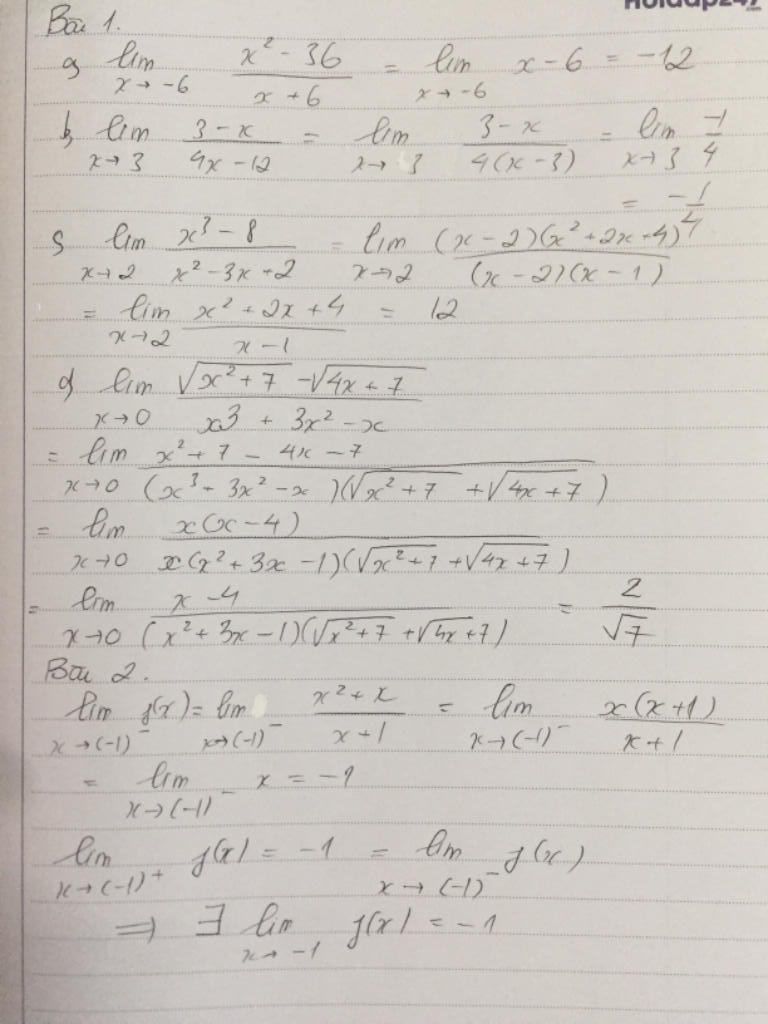 Hoidap247
Bài 1.
a, lim_{x→-6} (x² - 36)/(x + 6) = lim_{x→-6} x - 6 = -12
b, lim_{x→3} (3 - x)/(4x - 12) = lim_{x→3} (3 - x)/(4(x - 3)) = lim_{x→3} -1/4
= -1/4
c, lim_{x→2} (x³ - 8)/(x² - 3x + 2) = lim_{x→2} ((x - 2)(x² + 2x + 4))/((x - 2)(x - 1))
= lim_{x→2} (x² + 2x + 4)/(x - 1) = 12
d, lim_{x→0} (√(x² + 7) - √(4x + 7))/(x³ + 3x² - x)
= lim_{x→0} (x² + 7 - 4x - 7)/((x³ + 3x² - x)(√(x² + 7) + √(4x + 7)))
= lim_{x→0} (x(x - 4))/(x(x² + 3x - 1)(√(x² + 7) + √(4x + 7)))
= lim_{x→0} (x - 4)/((x² + 3x - 1)(√(x² + 7) + √(4x + 7))) = 2/√7
Bài 2.
lim_{x→(-1)⁻} f(x) = lim_{x→(-1)⁻} (x² + x)/(x + 1) = lim_{x→(-1)⁻} (x(x + 1))/(x + 1)
= lim_{x→(-1)⁻} x = -1
lim_{x→(-1)⁺} f(x) = -1 = lim_{x→(-1)⁻} f(x)
⇒ ∃ lim_{x→-1} f(x) = -1